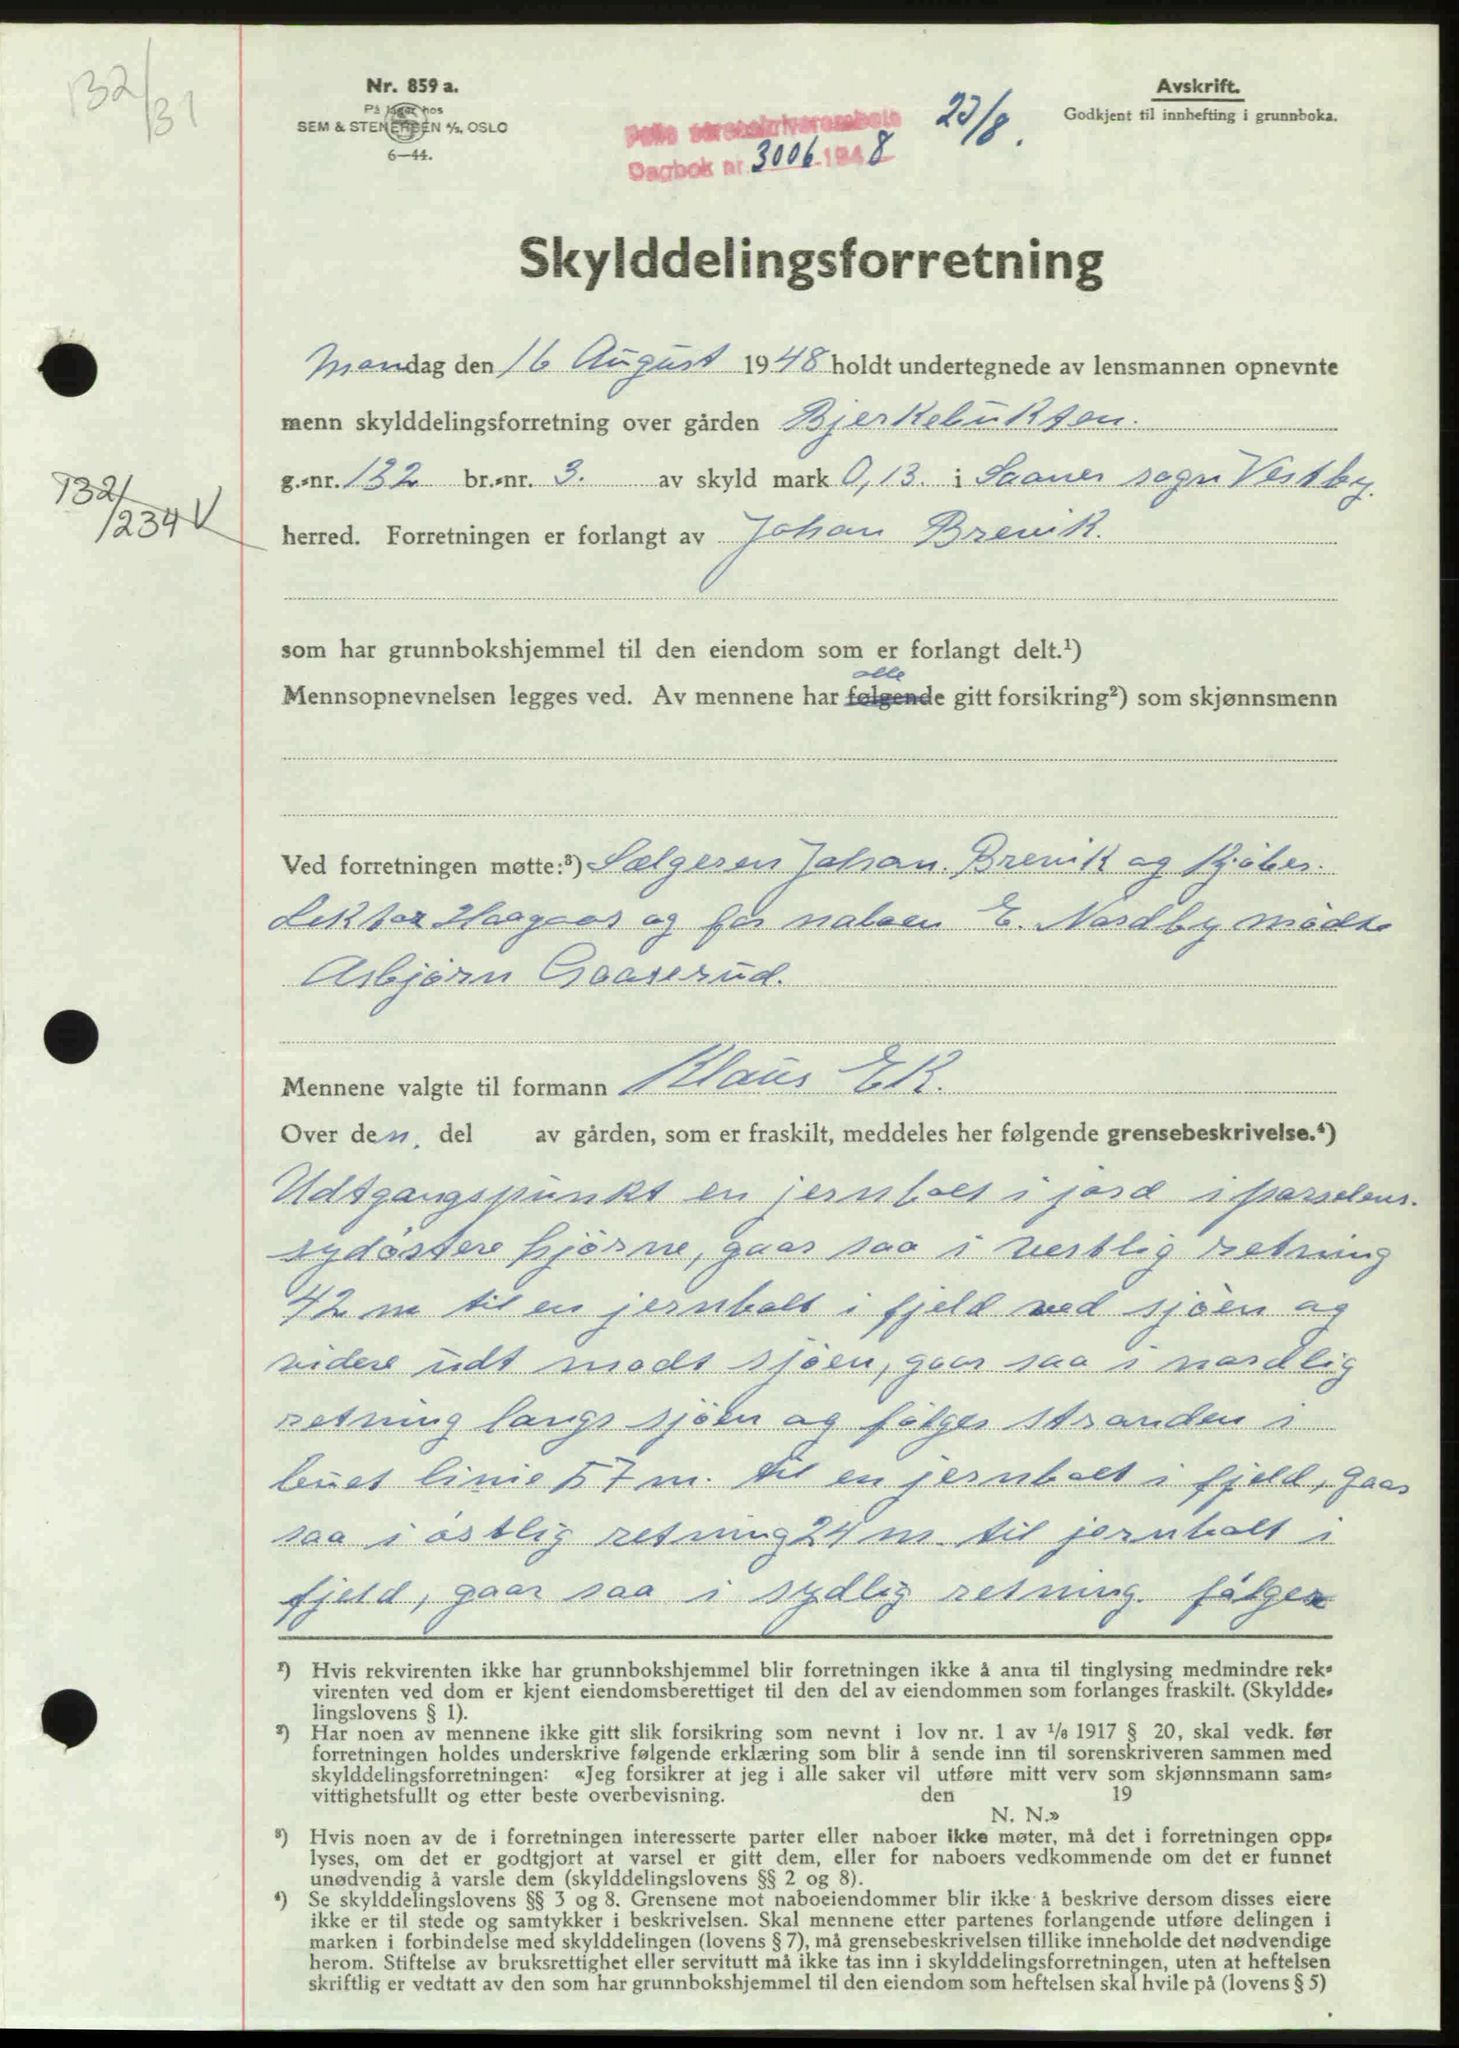 132/31
Nr. 859 a.
På lager hos
SEM & STENERSEN A/S, OSLO
6—44.
Avskrift.
Godkjent til innhefting i grunnboka.
Follo sorenskriverembete
Dagbok nr. 3006-1948
23/8.
Skylddelingsforretning
Mandag den 16 August 1948 holdt undertegnede av lensmannen opnevnte
menn skylddelingsforretning over gården Bjerkebukten.
g.-nr. 132 br.-nr. 3. av skyld mark 0,13. i Saaner sogn Vestby.
132/234 V
herred. Forretningen er forlangt av Johan Brevik.
som har grunnbokshjemmel til den eiendom som er forlangt delt.¹)
alle
Mennsopnevnelsen legges ved. Av mennene har følgende gitt forsikring²) som skjønnsmenn
Ved forretningen møtte:³) Sælgeren Johan. Brevik og Kjøber.
Lektor Haagaas og for naboen E. Nordby mødte
Asbjørn Gaaserud.
Mennene valgte til formann Klaus Ek.
Over den. del av gården, som er fraskilt, meddeles her følgende grensebeskrivelse.⁴)
Udtgangspunkt en jernbolt i jord i parselens.
sydøstere hjørne, gaar saa i vestlig retning
42 m til en jernbolt i fjeld ved sjøen og
videre udt modt sjøen, gaar saa i nordlig
retning langs sjøen og følger stranden i
buet linie 57 m. til en jernbolt i fjeld, gaar
saa i østlig retning 24 m. til jernbolt i
fjeld, gaar saa i sydlig retning. følger
¹) Hvis rekvirenten ikke har grunnbokshjemmel blir forretningen ikke å anta til tinglysing medmindre rek-
virenten ved dom er kjent eiendomsberettiget til den del av eiendommen som forlanges fraskilt. (Skyldde-
lingslovens § 1).
²) Har noen av mennene ikke gitt slik forsikring som nevnt i lov nr. 1 av 1/8 1917 § 20, skal vedk. før
forretningen holdes underskrive følgende erklæring som blir å sende inn til sorenskriveren sammen med
skylddelingsforretningen: «Jeg forsikrer at jeg i alle saker vil utføre mitt verv som skjønnsmann sam-
vittighetsfullt og etter beste overbevisning. den 19
N. N.»
³) Hvis noen av de i forretningen interesserte parter eller naboer ikke møter, må det i forretningen opp-
lyses, om det er godtgjort at varsel er gitt dem, eller for naboers vedkommende om det er funnet
unødvendig å varsle dem (skylddelingslovens §§ 2 og 8).
⁴) Se skylddelingslovens §§ 3 og 8. Grensene mot naboeiendommer blir ikke å beskrive dersom disses eiere
ikke er til stede og samtykker i beskrivelsen. Skal mennene etter partenes forlangende utføre delingen i
marken i forbindelse med skylddelingen (lovens § 7), må grensebeskrivelsen tillike inneholde det nødvendige
herom. Stiftelse av bruksrettighet eller servitutt må ikke tas inn i skylddelingsforretningen, uten at heftelsen
skriftlig er vedtatt av den som har grunnbokshjemmel til den eiendom som heftelsen skal hvile på (lovens § 5)